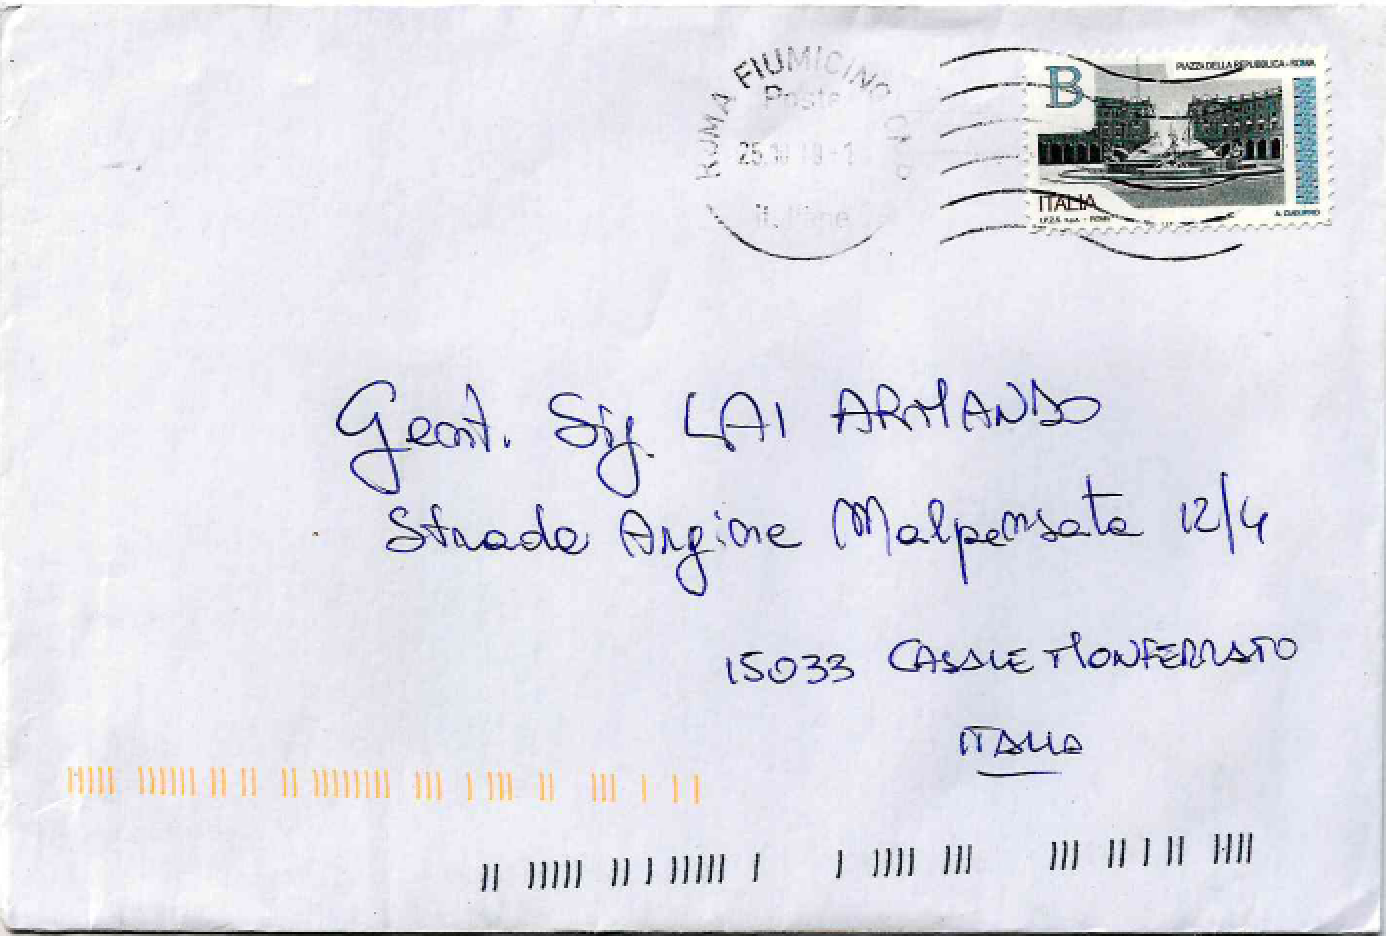 ROMA FIUMICINO
Poste
25.10.19-
italiane
PIAZZA DELLA REPUBBLICA - ROMA
B
ITALIA
I.P.Z.S. S.p.A. - ROMA
Gent. Sig. LAI ARMANDO
Strada Argine Malpensata 12/4
15033 CASALE MONFERRATO
ITALIA